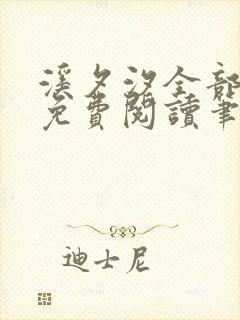 溪夕汐全部
免費閱讀筆
迪士尼